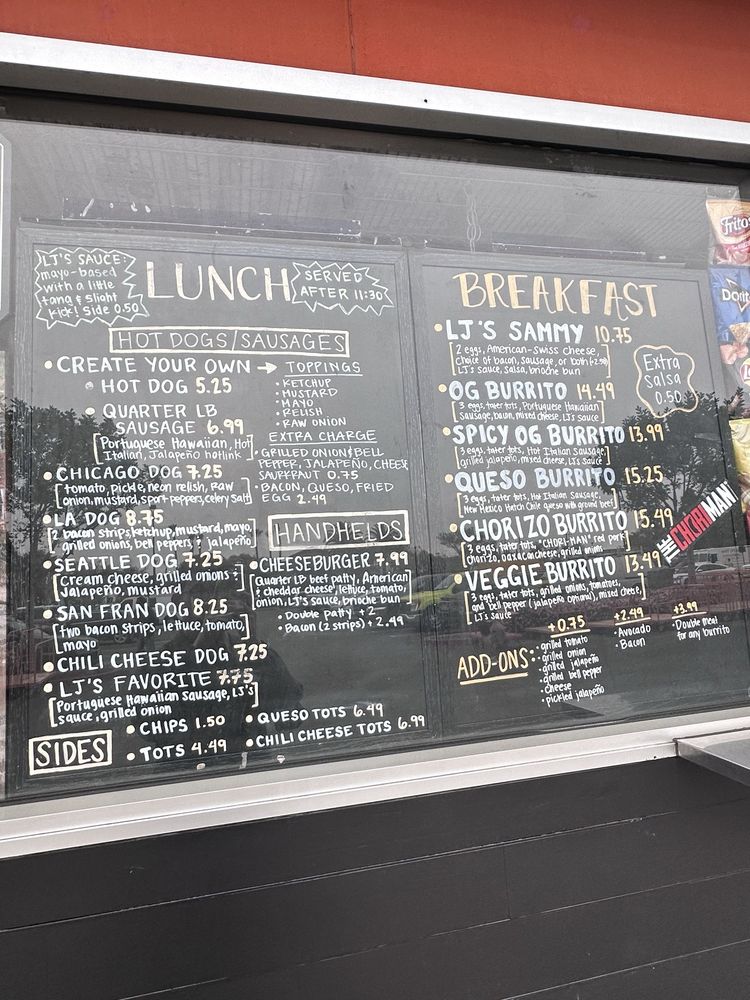 LJ'S SAUCE:
mayo-based
with a little
tang & slight
kick! Side 0.50
LUNCH
SERVED
AFTER 11:30
HOT DOGS/SAUSAGES
• CREATE YOUR OWN → TOPPINGS
• HOT DOG 5.25
• QUARTER LB
SAUSAGE 6.99
[Portuguese Hawaiian, Hot
Italian, Jalapeño hotlink]
• KETCHUP
• MUSTARD
• MAYO
• RELISH
• RAW ONION
EXTRA CHARGE
• GRILLED ONION & BELL
PEPPER, JALAPEÑO, CHEESE
SAUERKRAUT 0.75
• BACON, QUESO, FRIED
EGG 2.49
• CHICAGO DOG 7.25
[tomato, pickle, neon relish, raw
onion, mustard, sport peppers, celery salt]
• LA DOG 8.75
[2 bacon strips, ketchup, mustard, mayo,
grilled onions, bell peppers + jalapeño]
• SEATTLE DOG 7.25
[Cream cheese, grilled onions +
jalapeño, mustard]
• SAN FRAN DOG 8.25
[two bacon strips, lettuce, tomato,
mayo]
• CHILI CHEESE DOG 7.25
• LJ'S FAVORITE 7.75
[Portuguese Hawaiian Sausage, LJ's
sauce, grilled onion]
HANDHELDS
• CHEESEBURGER 7.99
[Quarter LB beef patty, American
+ cheddar cheese, lettuce, tomato,
onion, LJ's sauce, brioche bun]
• Double patty + 2
• Bacon (2 strips) + 2.49
SIDES
• CHIPS 1.50
• TOTS 4.49
• QUESO TOTS 6.49
• CHILI CHEESE TOTS 6.99
BREAKFAST
• LJ'S SAMMY 10.75
[2 eggs, American-Swiss cheese,
choice of bacon, sausage, or both (+2.50)
LJ's sauce, salsa, brioche bun]
Extra
Salsa
0.50
• OG BURRITO 14.49
[3 eggs, tater tots, Portuguese Hawaiian
Sausage, bacon, mixed cheese, LJ's sauce]
• SPICY OG BURRITO 13.99
[3 eggs, tater tots, Hot Italian Sausage,
grilled jalapeño, mixed cheese, LJ's sauce]
• QUESO BURRITO 15.25
[3 eggs, tater tots, Hot Italian Sausage,
New Mexico Hatch Chile queso with ground beef]
• CHORIZO BURRITO 15.49
[3 eggs, tater tots, "CHORI-MAN" red pork
chorizo, oaxacan cheese, grilled onions]
THE CHORI MAN
• VEGGIE BURRITO 13.49
[3 eggs, tater tots, grilled onions, tomatoes,
and bell pepper (jalapeño optional), mixed cheese,
LJ's sauce]
ADD-ONS:
+0.75
• grilled tomato
• grilled onion
• grilled jalapeño
• grilled bell pepper
• cheese
• pickled jalapeño
+2.49
• Avocado
• Bacon
+3.99
• Double meat
for any burrito
Fritos
Dorit